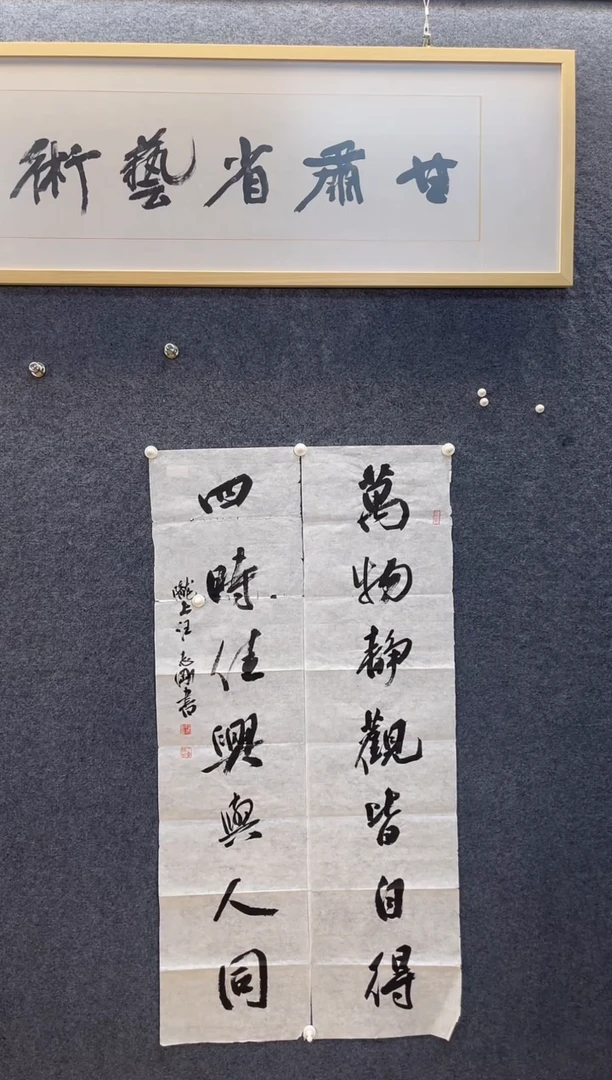 甘肅省藝術
萬物静觀皆自得
四時佳興與人同
隴上汪志剛書